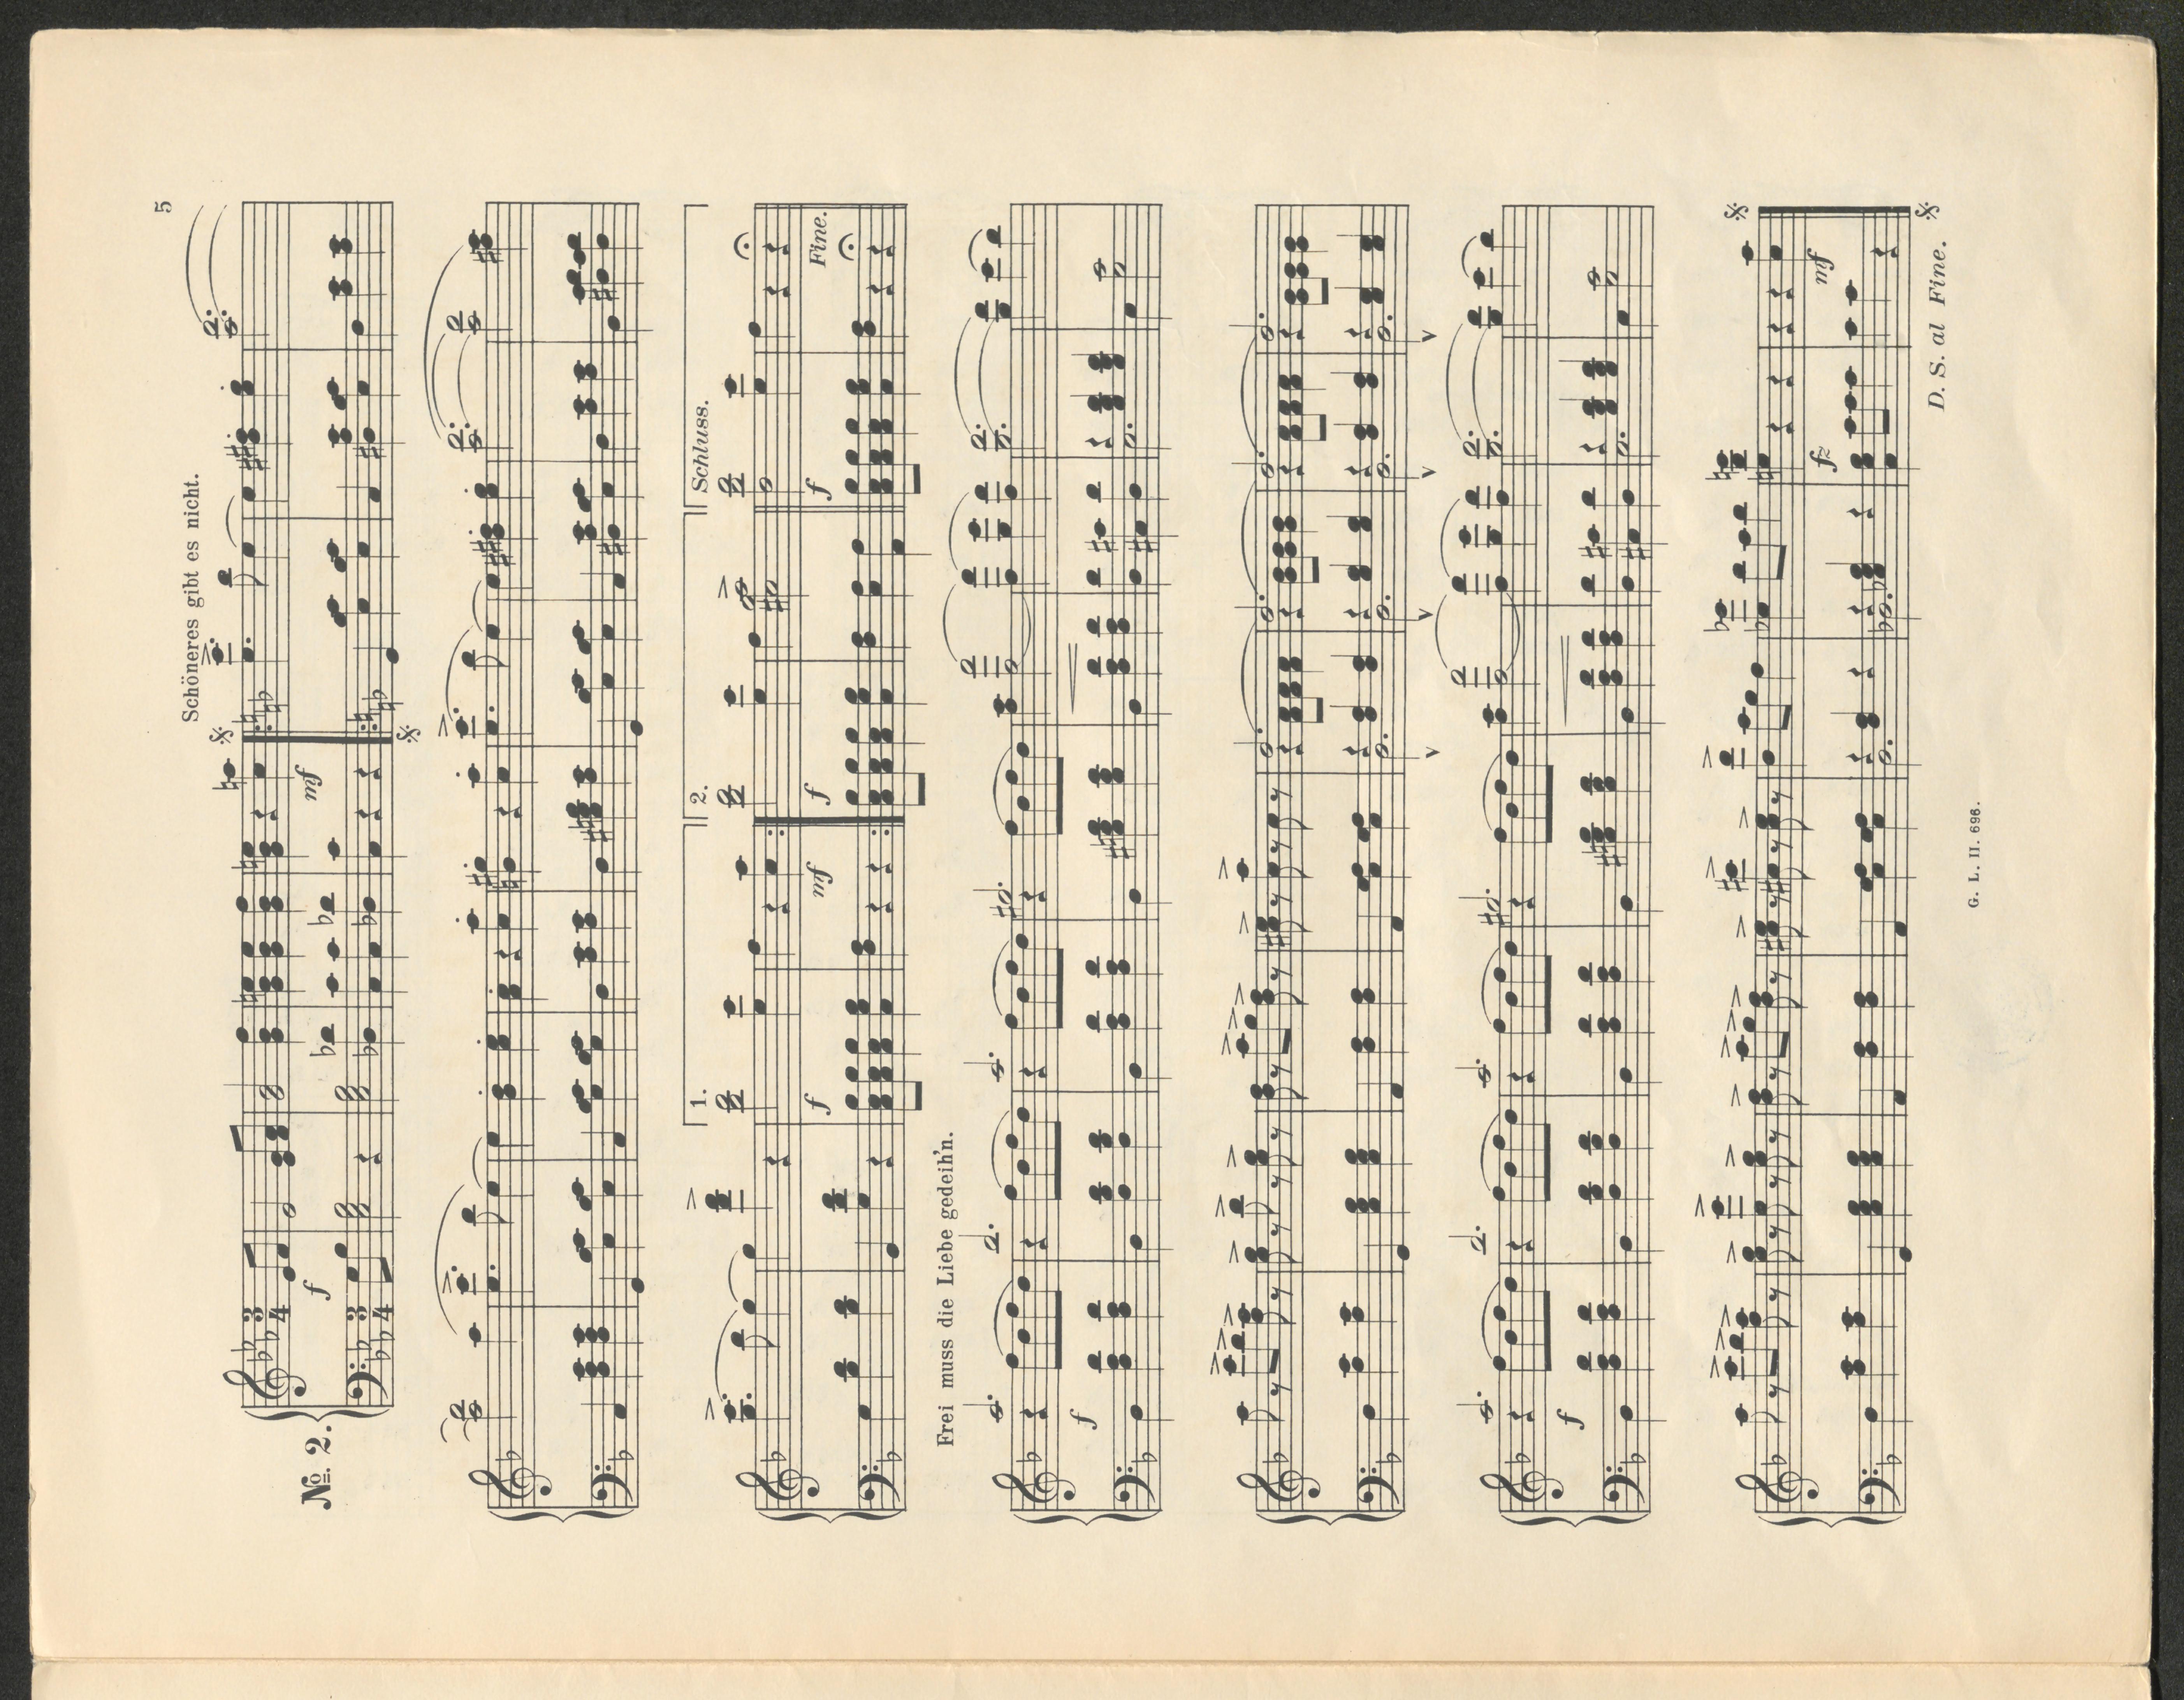 5
Schöneres gibt es nicht.
№ 2.
3 4
3 4
f
mf
1.
2.
Schluss.
f
mf
f
f
Fine.
Frei muss die Liebe gedeih'n.
f
f
fz
mf
D. S. al Fine.
G. L. II. 696.